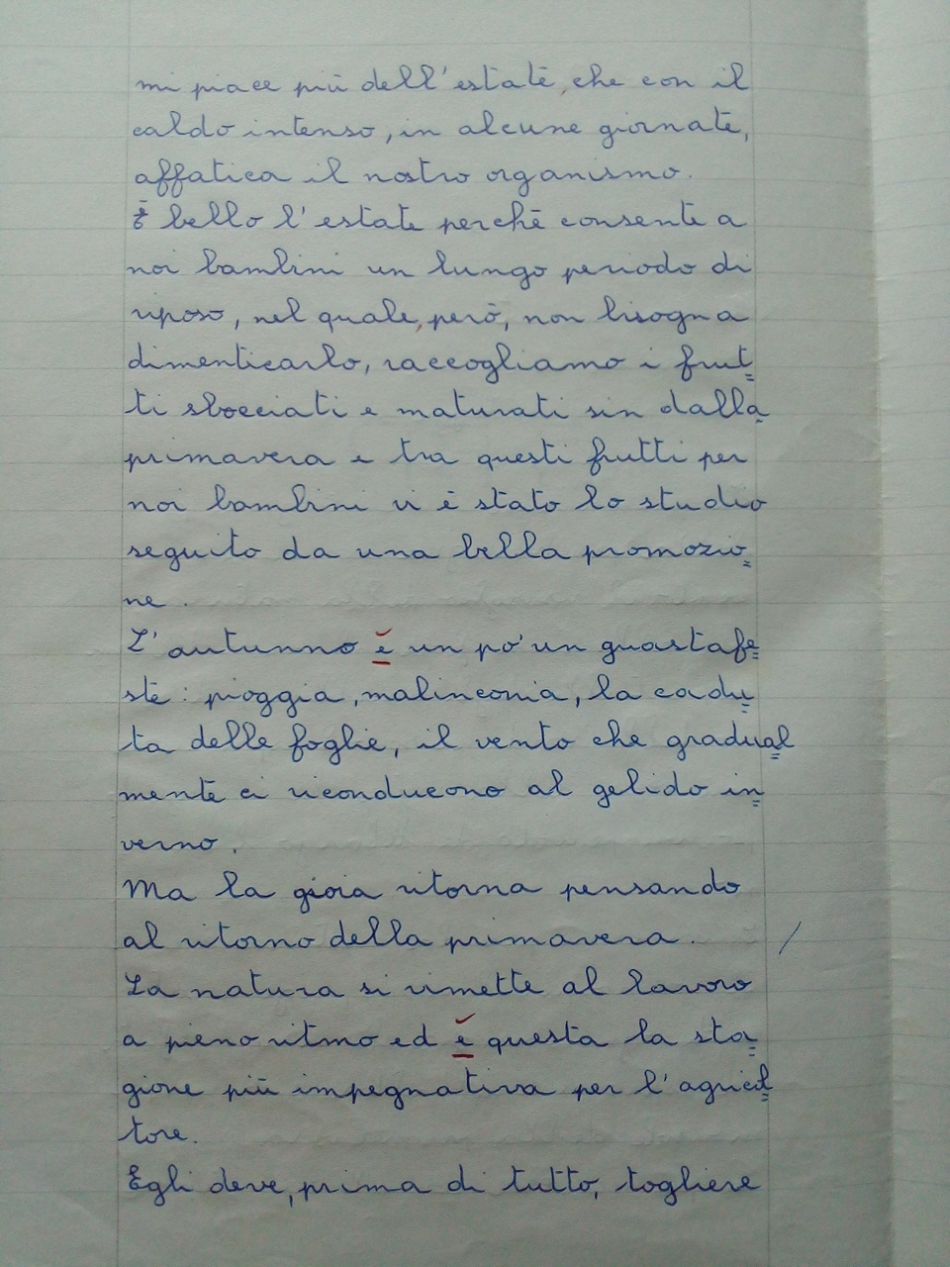 mi piace più dell'estate, che con il
caldo intenso, in alcune giornate,
affatica il nostro organismo.
È bello l'estate perchè consente a
noi bambini un lungo periodo di
riposo, nel quale, però, non bisogna
dimenticarlo, raccogliamo i frut=
ti sbocciati e maturati sin dalla
primavera e tra questi frutti per
noi bambini vi è stato lo studio
seguito da una bella promozio=
ne.
L'autunno è un po' un guastafe=
ste: pioggia, malinconia, la cadu=
ta delle foglie, il vento che gradual=
mente ci riconducono al gelido in=
verno.
Ma la gioia ritorna pensando
al ritorno della primavera.
La natura si rimette al lavoro
a pieno ritmo ed è questa la sta=
gione più impegnativa per l'agricol=
tore.
Egli deve, prima di tutto, togliere